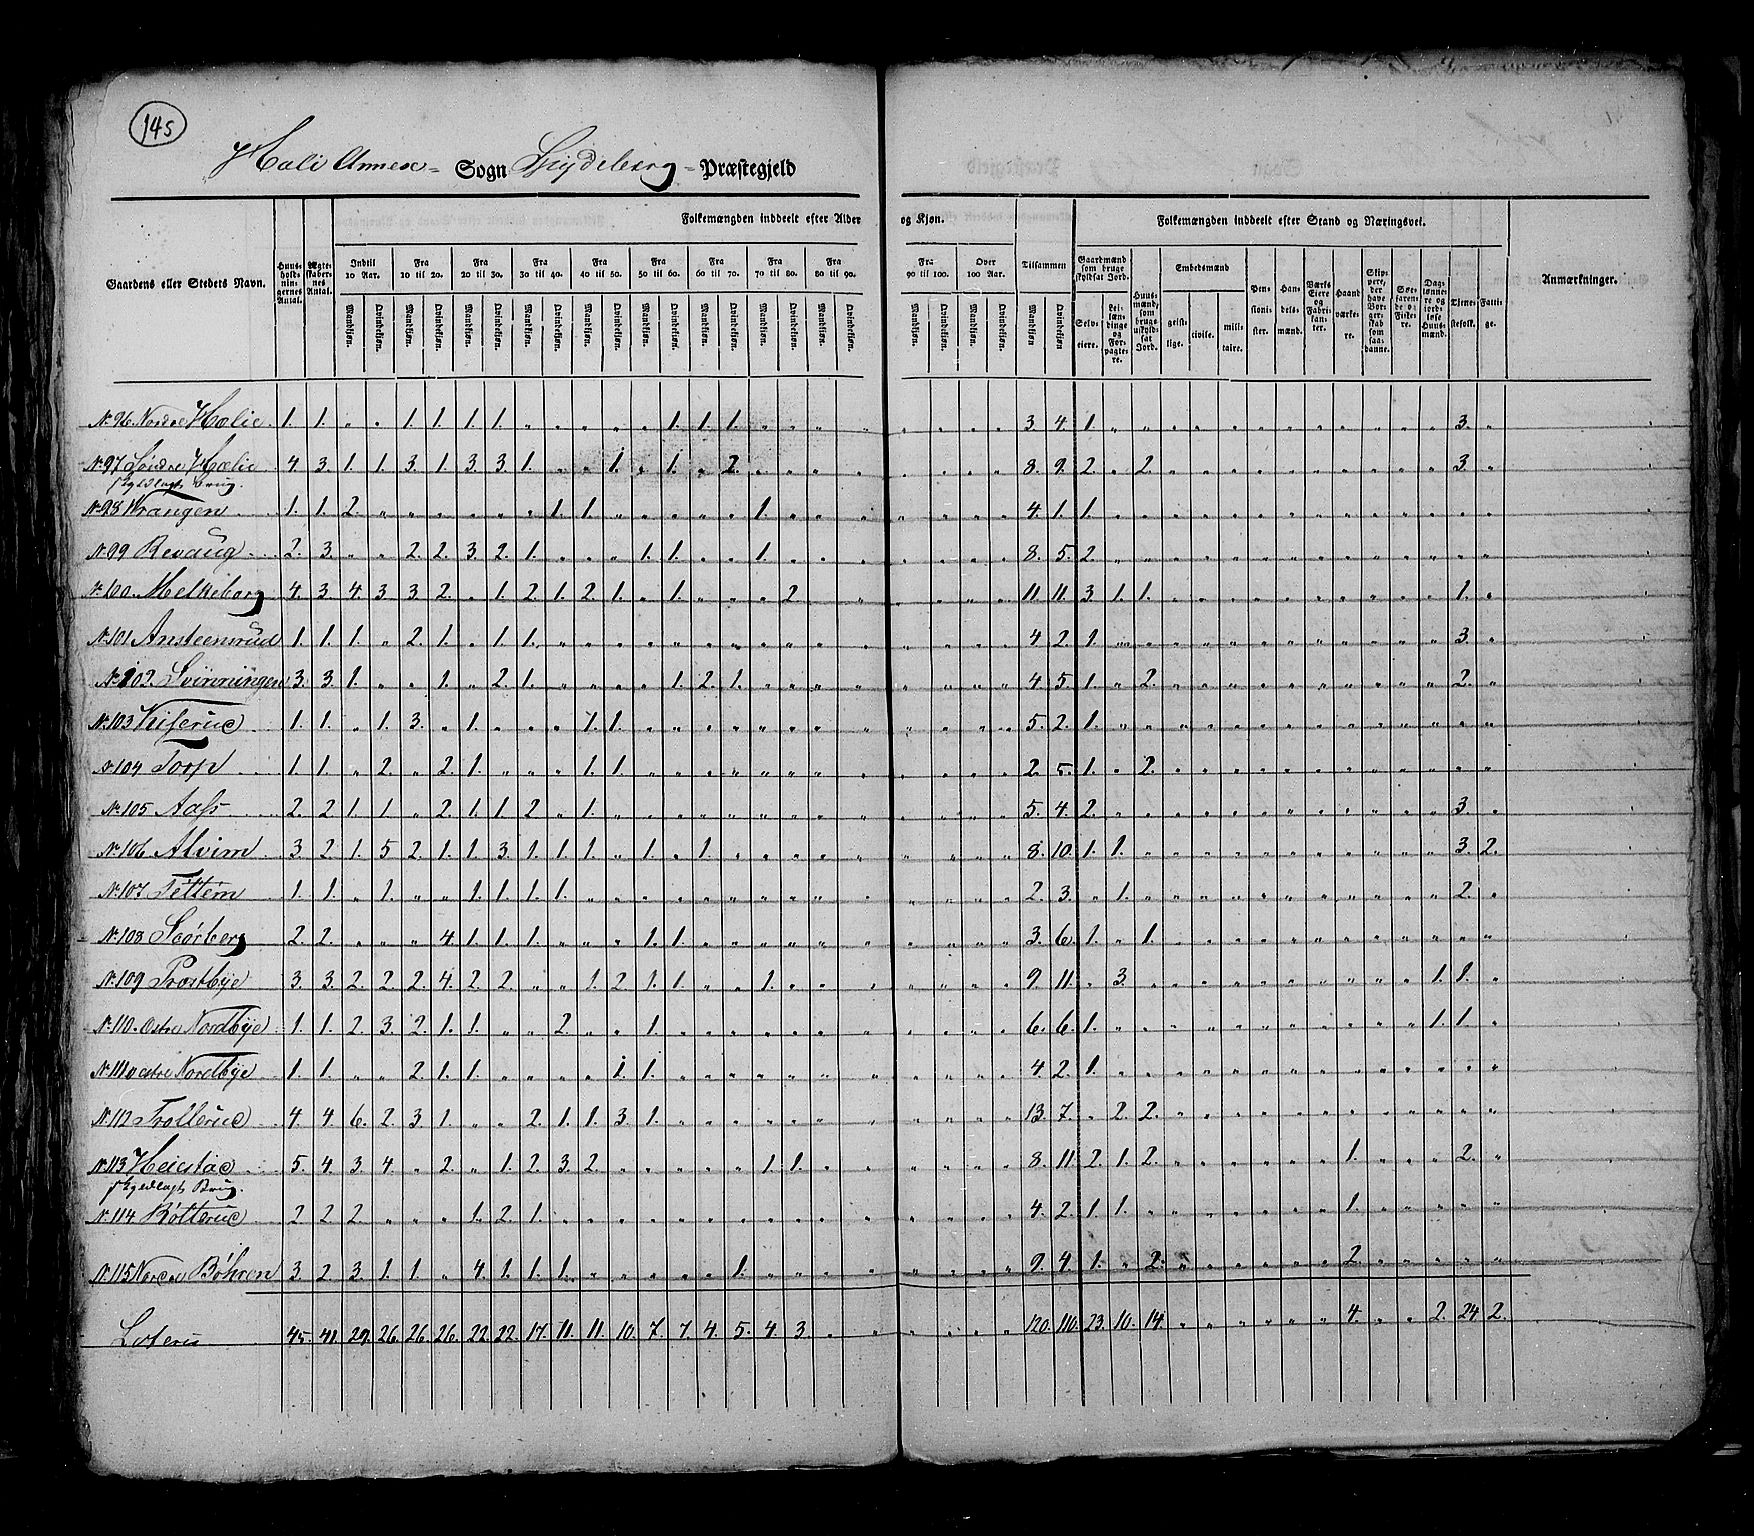 145
Hali Annex- Sogn Præstegjeld
Folkemængden inddeelt efter Alder og Kjøn. Folkemængden inddeelt efter Stand og Næringsvei.
Gaardens eller Stedets Navn. Huusholdningernes Antal. Ægteskabernes Antal. Indtil 10 Aar. Fra 10 til 20. Fra 20 til 30. Fra 30 til 40. Fra 40 til 50. Fra 50 til 60. Fra 60 til 70. Fra 70 til 80. Fra 80 til 90. Fra 90 til 100. Over 100 Aar. Tilsammen Gaardmænd som bruge skyldsat Jord. Huusmænd, som bruge uskyldsat Jord. Embedsmænd Pensionister. Handelsmænd. Værks Eiere og Fabrikanter. Haandværkere. Skippere, der have Borgerskab som saadanne. Søefarende og Fiskere. Daglønnere og jordløse Huusmænd. Tjenestefolk. Fattige. Anmærkninger.
Mandkjøn. Qvindekjøn. Mandkjøn. Qvindekjøn. Mandkjøn. Qvindekjøn. Mandkjøn. Qvindekjøn. Mandkjøn. Qvindekjøn. Mandkjøn. Qvindekjøn. Mandkjøn. Qvindekjøn. Mandkjøn. Qvindekjøn. Mandkjøn. Qvindekjøn. Mandkjøn. Qvindekjøn. Mandkjøn. Qvindekjøn. Mandkjøn Qvindekjøn. Selveiere. Leilændinge og Forpagtere. geistlige. civile. militaire.
No 96 Nordre Halie 1. 1. " " 1. 1. 1. 1. " " " " " 1. 1. 1. " " " " " " " " 3. 4. 1. " " " " " " " " " " " " 3. "
No 97 Søndre Halie 4. 3. 1. 1. 3. 1. 3. 3. 1. " " 1. " 1. " 2. " " " " " " " " 8. 9. 2. " 2. " " " " " " " " " " 3. "
skyldlagt brug.
No 98 Wrangen 1. 1. 2. " " " " " " 1. 1. " " " " " 1. " " " " " " " 4. 1. 1. " " " " " " " " " " " " " "
No 99 Revaug 2. 3. " " 2. 2. 3. 2. 1. " " " 1. 1. " " 1. " " " " " " " 8. 5. 2. " " " " " " " " " " " " " "
No 100. Melkeborg 4. 3. 4. 3. 3. 2. " 1. 2. 1. 2. 1. " 1. " " " 2. " " " " " " 11. 11. 3. 1. 1. " " " " " " " " " " 1. "
No 101 Ansteensrud 1. 1. 1. " 2. 1. " 1. 1. " " " " " " " " " " " " " " " 4. 2. 1. " " " " " " " " " " " " 3. "
No 102. Svinnüngen 3. 3. 1. " " 1. " 2. 1. " " " " 1. 2. 1. " " " " " " " " 4. 5. 1. " 2. " " " " " " " " " " 2. "
No 103 1. 1. " 1. 3. " 1. " " " 1. 1. " " " " " " " " " " " " 5. 2. 1. " " " " " " " " " " " " " "
No 104 Torp 1. 1. " 2. " 2. 1. " " " 1. 1. " " " " " " " " " " " " 2. 5. 1. " 2. " " " " " " " " " " " "
No 105 Aass 2. 2. 1. 1. " 2. 1. 1. 2. " 1. " " " " " " " " " " " " " 5. 4. 2. " " " " " " " " " " " " 3. "
No 106 Alvim 3. 2. 1. 5. 2. 1. 1. 3. 1. 1. 1. " 1. " 1. " " " " " " " " " 8. 10. 1. 1. " " " " " " " " " " " 3. 2.
No 107 Tettem 1. 1. " 1. " " 1. 1. 1. 1. " " " " " " " " " " " " " " 2. 3. " 1. " " " " " " " " " " " 2. "
No 108 Scørberg 2. 2. " " " 4. 1. 1. 1. " " " 1. 1. " " " " " " " " " " 3. 6. 1. " 1. " " " " " " " " " " " "
No 109 Prostbÿe 3. 3. 2. 2. 2. 4. 2. 2. " " 1. 2. 1. 1. " " 1. " " " " " " " 9. 11. " 3. " " " " " " " " " " 1. 1. "
No 110. Østre Nordbÿe 1. 1. 2. 3. 2. 1. 1. " " 2. " " 1. " " " " " " " " " " " 6. 6. 1. " " " " " " " " " " " 1. 1. "
No 111 Nordbÿe 1. 1. " " 2. 1. 1. " " " " 1. 1. " " " " " " " " " " " 4. 2. 1. " " " " " " " " " " " " " "
No 112 Trollerud 4. 4. 6. 2. 3. 1. " " 2. 1. 1. 3. 1. " " " " " " " " " " " 13. 7. " 2. 2. " " " " " " " " " " " "
No 113 Heiestad 5. 4. 3. 4. " 2. " 1. 2. 3. 2. " " " " " 1. 1. " " " " " " 8. 11. 2. 1. 2. " " " " " " 1. " " " 2. "
skyldlagt Brug.
No 114 Bölterud 2. 2. 2. " " " 1. 2. 1. " " " " " " " " " " " " " " " 4. 2. 1. 1. " " " " " " " 1. " " " " "
No 115 Nordre Bøhren 3. 2. 3. 1. 1. " 4. 1. 1. 1. " " " " " 1. " " " " " " " " 9. 4. 1. " 2. " " " " " " 2. " " " " "
Lateris 45. 41. 29. 26. 26. 26. 22. 22. 17. 11. 11. 10. 7. 7. 4. 5. 4. 3. " " " " " " 120. 110. 23. 10. 14. " " " " " " 4. " " 2. 24. 2.